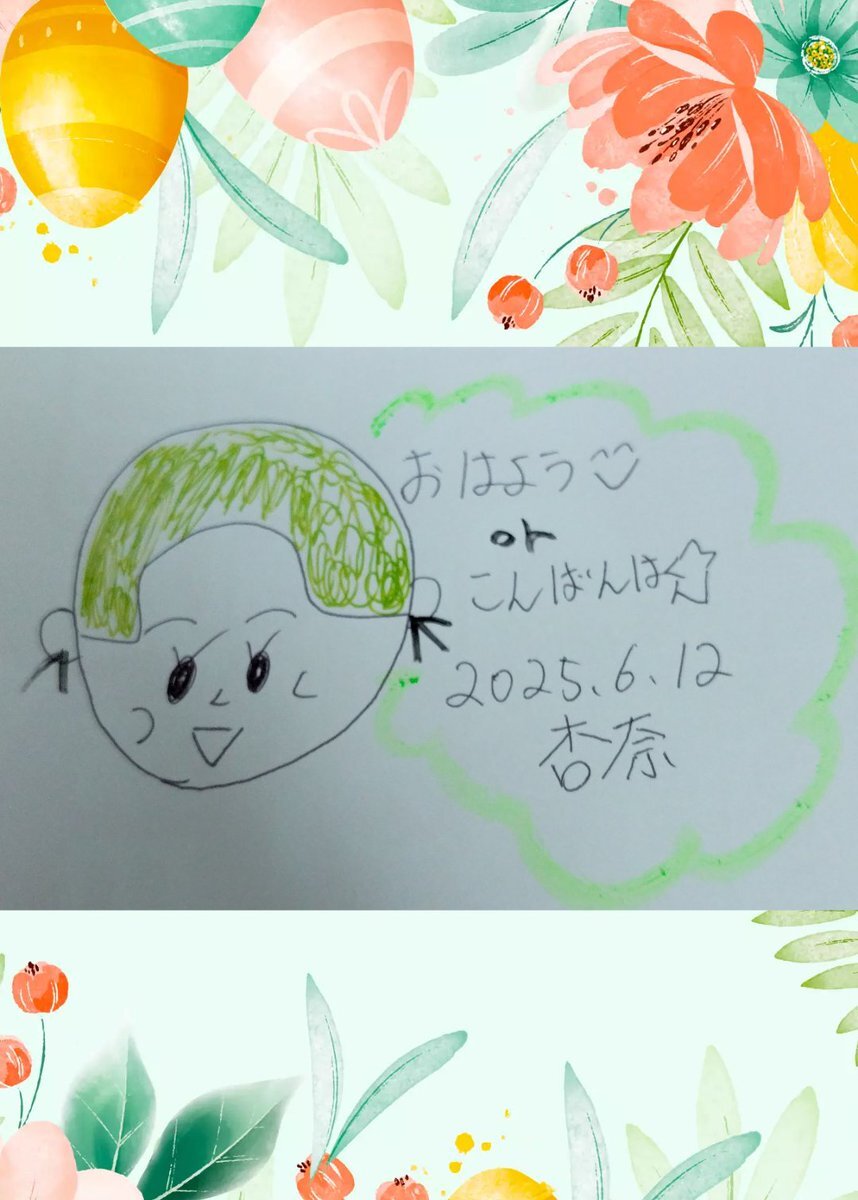 おはよう
or
こんばんは☆
2025.6.12
杏奈